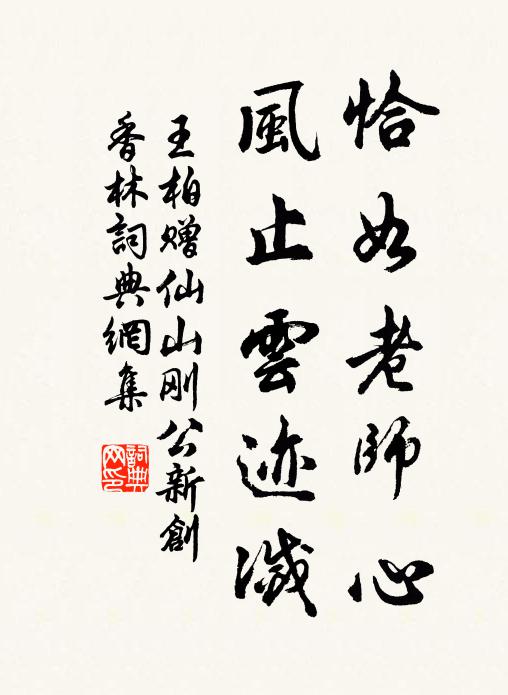 恰如老師心
風止雲迹滅
王柏赠仙山刚公新創
香林詞典網集
詞典
网印